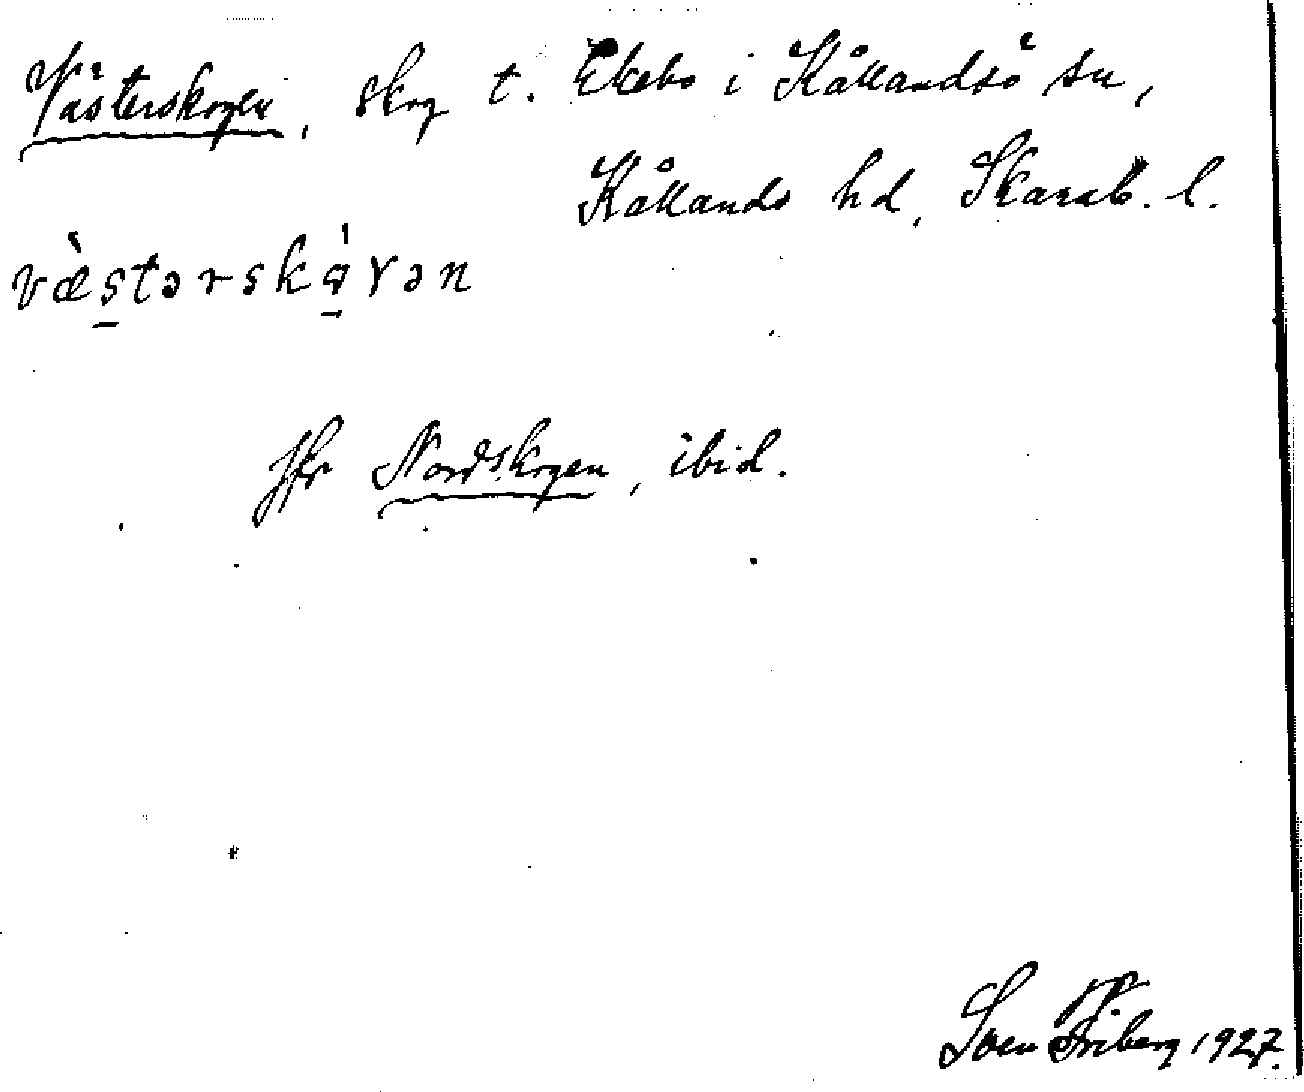 Västerskogen, skog t. Ekebo i Kållandsö sn,
Kållands hd, Skarab. l.
væ̀stərskɑ́γən
Jfr Nordskogen, ibid.
Sven Friberg 1927.